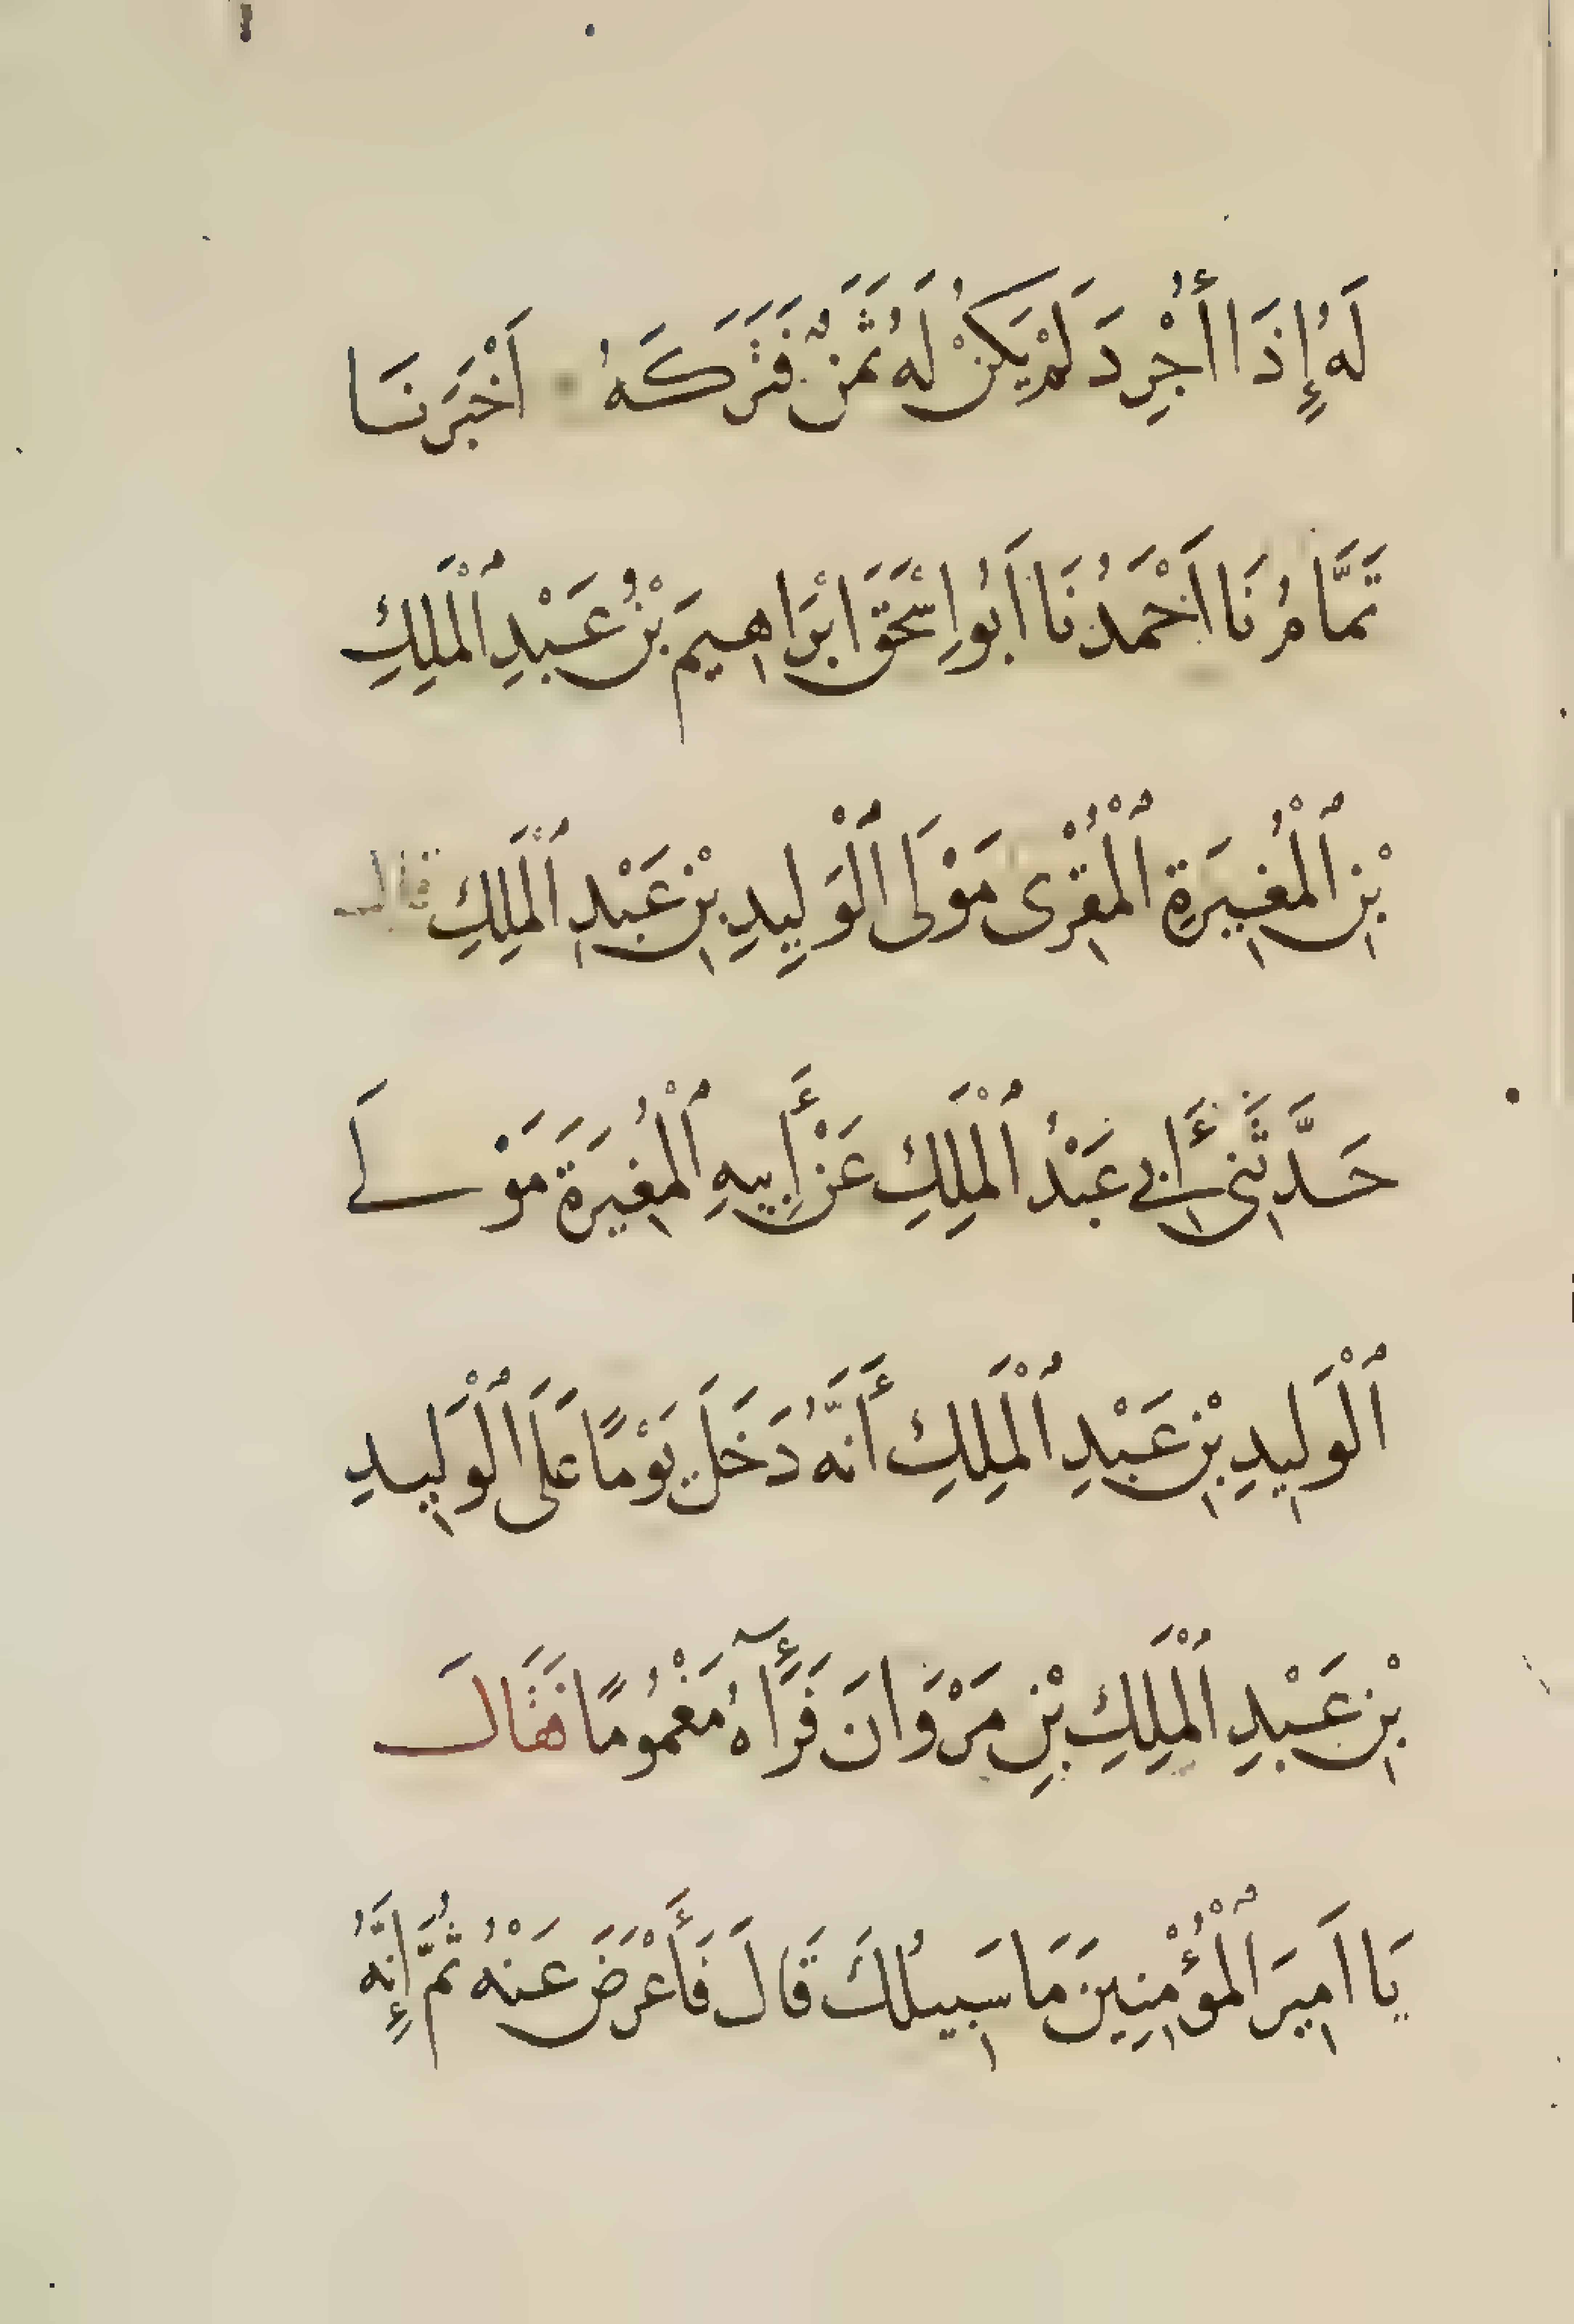 لَهُ إِذَا أُجْرِدَ لَمْ يَكُنْ لَهُ ثَمَنٌ فَتَرَكَهُ أَخْبَرَنَا
تَمَّامُ نَا أَحْمَدُ نَا أَبُو إِسْحَقَ ابْرَاهِيمَ بْنُ عَبْدِ ٱلْمَلِكِ
بْنِ ٱلْمُغِيرَةِ ٱلْمُقْرِى مَوْلَى ٱلْوَلِيدِ بْنِ عَبْدِ ٱلْمَلِكِ قال
حَدَّثَنِى أَبِي عَبْدُ ٱلْمَلِكِ عَنْ أَبِيهِ ٱلْمُغِيرَةَ مَوْلَى
ٱلْوَلِيدِ بْنِ عَبْدِ ٱلْمَلِكِ أَنَّهُ دَخَلَ يَوْمًا عَلَى ٱلْوَلِيدِ
بْنِ عَبْدِ ٱلْمَلِكِ بْنِ مَرْوَانَ فَرَآهُ مَغْمُومًا فَقَالَ
يَا اَمِيرَ ٱلْمُؤْمِنِينَ مَا سَبِيلُكَ قَالَ فَأَعْرَضَ عَنْهُ ثُمَّ إِنَّهُ